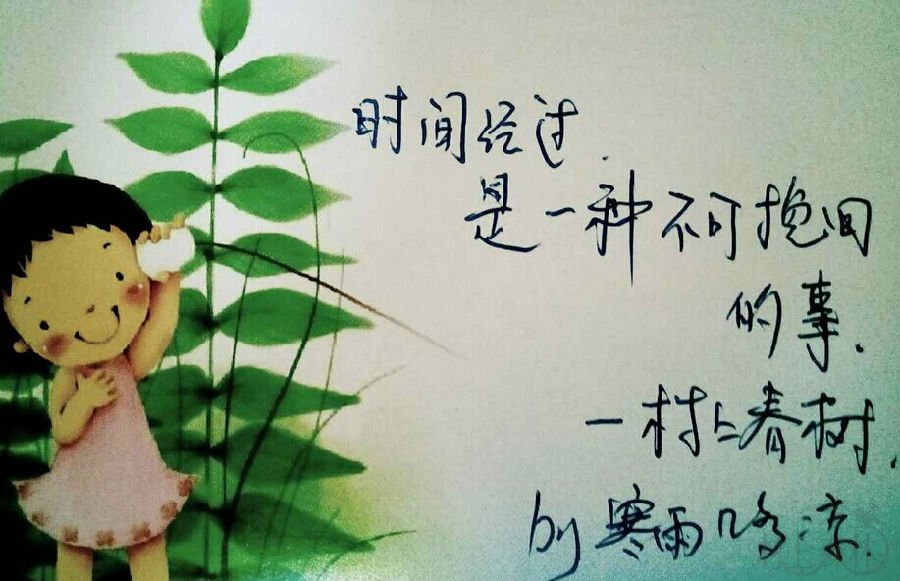 时间经过.
是一种不可抱回
的事.
一村上春树.
by 寒雨鸣凉.